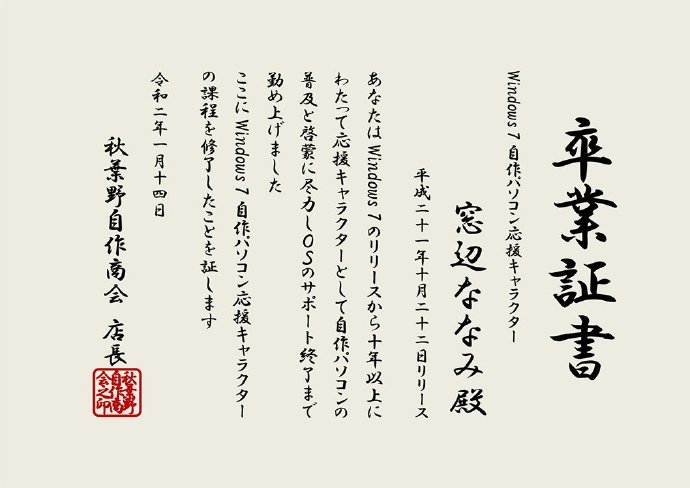 卒業証書
Windows 7 自作パソコン応援キャラクター
窓辺ななみ殿
平成二十一年十月二十二日リリース
あなたは Windows 7 のリリースから十年以上に
わたって応援キャラクターとして自作パソコンの
普及と啓蒙に尽力しOSのサポート終了まで
勤め上げました
ここに Windows 7 自作パソコン応援キャラクター
の課程を修了したことを証します
令和二年一月十四日
秋葉野自作商会 店長
秋葉野
自作商
会之印